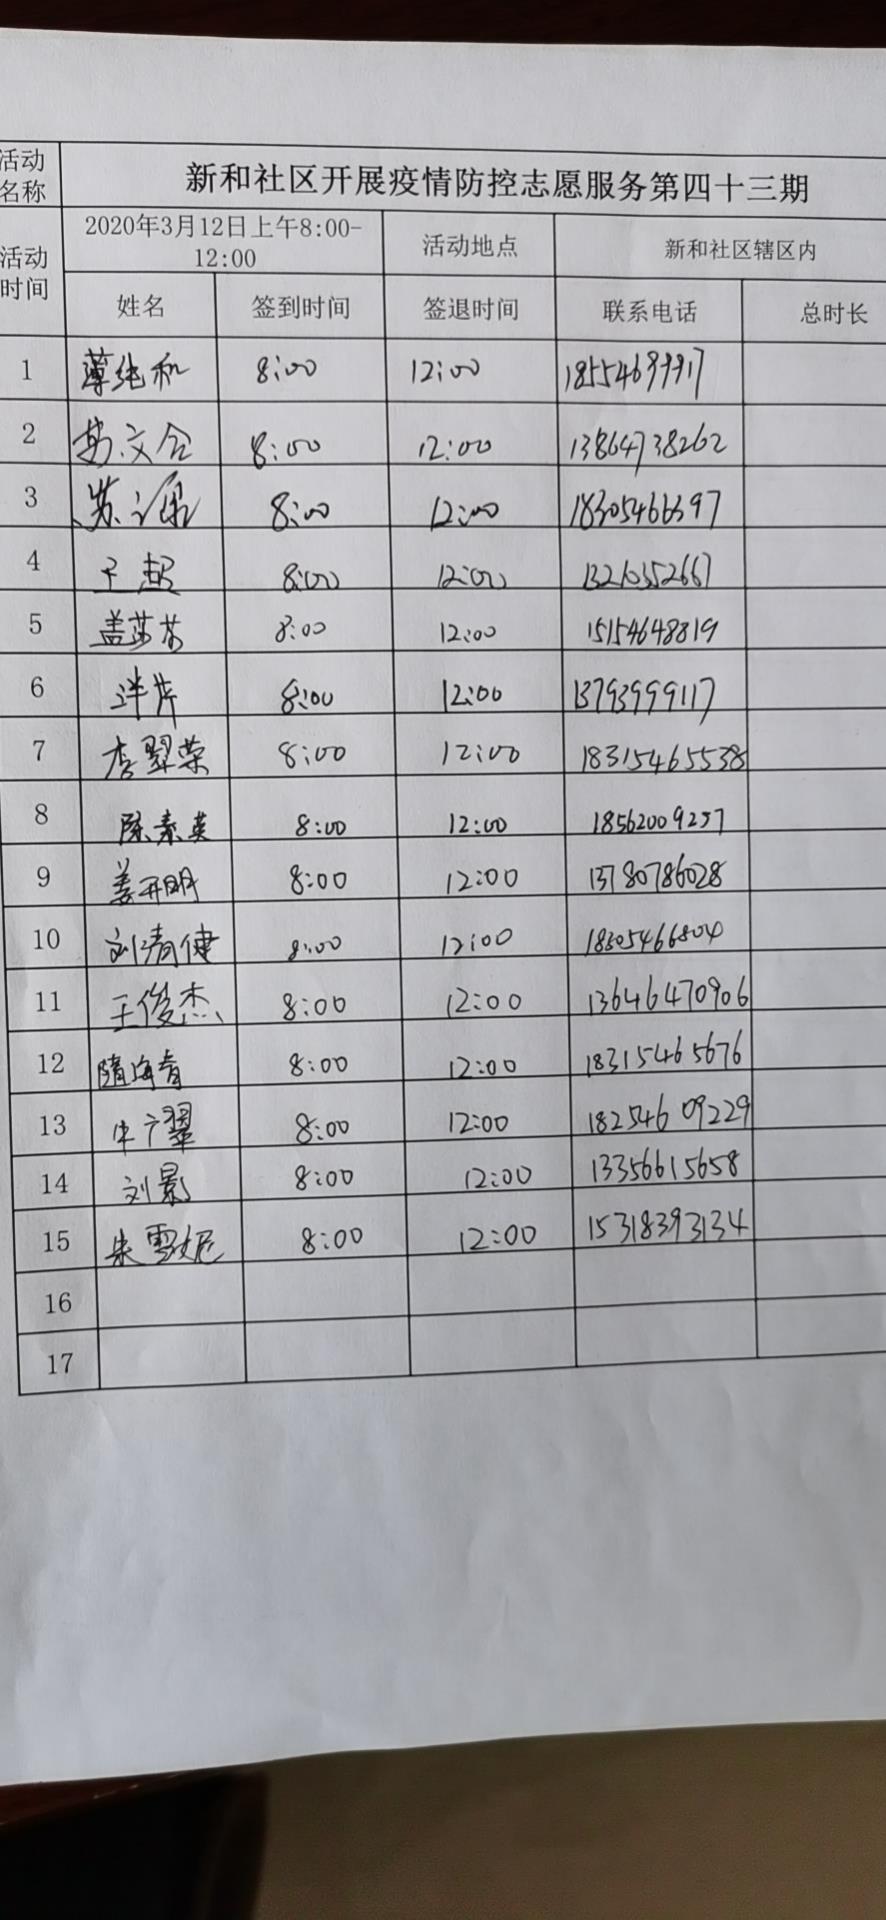 活动名称 新和社区开展疫情防控志愿服务第四十三期
活动时间 2020年3月12日上午8:00-12:00 活动地点 新和社区辖区内
姓名 签到时间 签退时间 联系电话 总时长
1 薄纯和 8:00 12:00
2 8:00 12:00 13864738262
3 苏 8:00 12:00 18305466397
4 王超 8:00 12:00 13210352667
5 盖莎莎 8:00 12:00 15154648819
6 8:00 12:00 13793999117
7 李翠荣 8:00 12:00 18315465538
8 陈素英 8:00 12:00 18562009257
9 姜开明 8:00 12:00 13780786028
10 刘清健 8:00 12:00 18305466804
11 王俊杰 8:00 12:00 13646470906
12 隋海青 8:00 12:00 18315465676
13 牛广翠 8:00 12:00 18254609229
14 刘影 8:00 12:00 13356615658
15 朱雪妮 8:00 12:00 15318393134
16
17